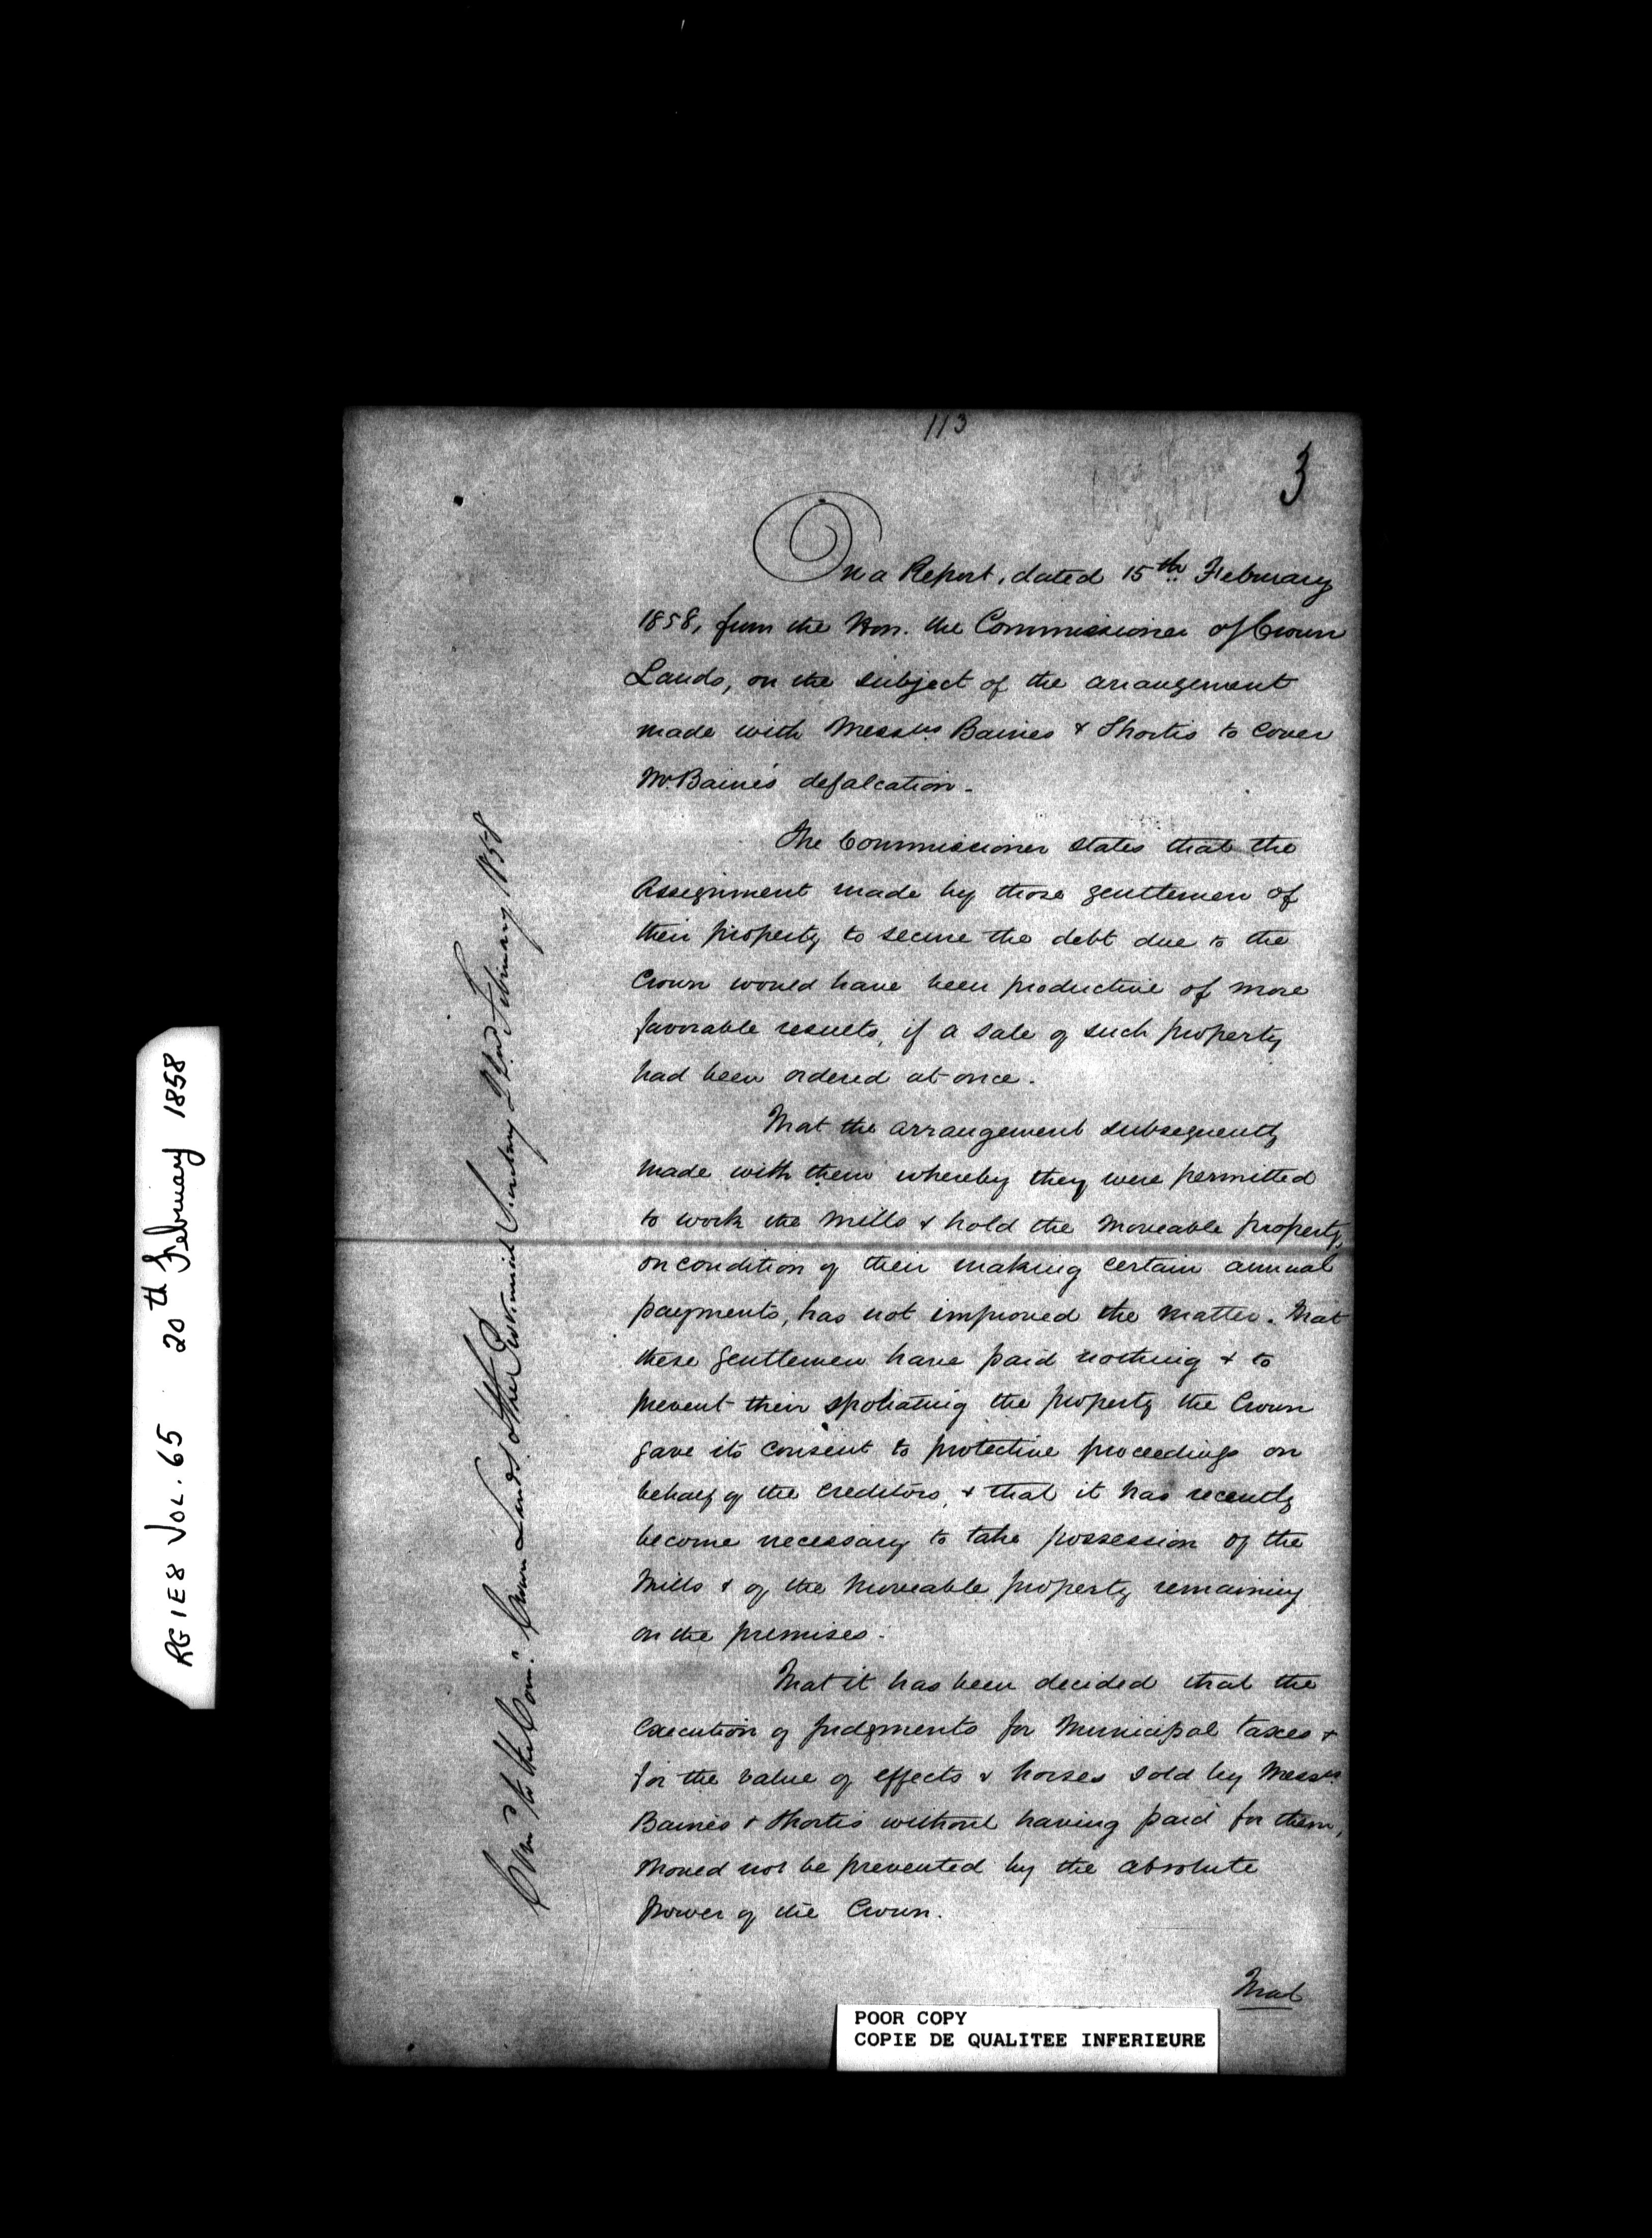 113
3
On a Report, dated 15th February
1858, from the Hon. the Commissioner of Crown
Lands, on the subject of the arrangement
made with Messrs Baines & Shortis to cover
Mr. Baines defalcation.
The Commissioner states that the
Assignment made by those gentlemen of
their property to secure the debt due to the
Crown would have been productive of more
favorable results, if a sale of such property
had been ordered at once.
That the arrangement subsequently
made with them whereby they were permitted
to work the mills & hold the moveable property,
on condition of their making certain annual
payments, has not improved the matter. That
these gentlemen have paid nothing & to
prevent their spoliating the property the Crown
gave its consent to protective proceedings on
behalf of the creditors, & that it has recently
become necessary to take possession of the
Mills & of the moveable property remaining
on the premises.
That it has been decided that the
execution of judgments for Municipal taxes &
for the value of effects & horses sold by Messrs
Baines & Shortis without having paid for them,
should not be prevented by the absolute
power of the Crown.
That
to the Com. Crown Lands & the Provincial Secretary 22nd February 1858
RG 1 E8 VOL. 65 20th February 1858
POOR COPY
COPIE DE QUALITEE INFERIEURE